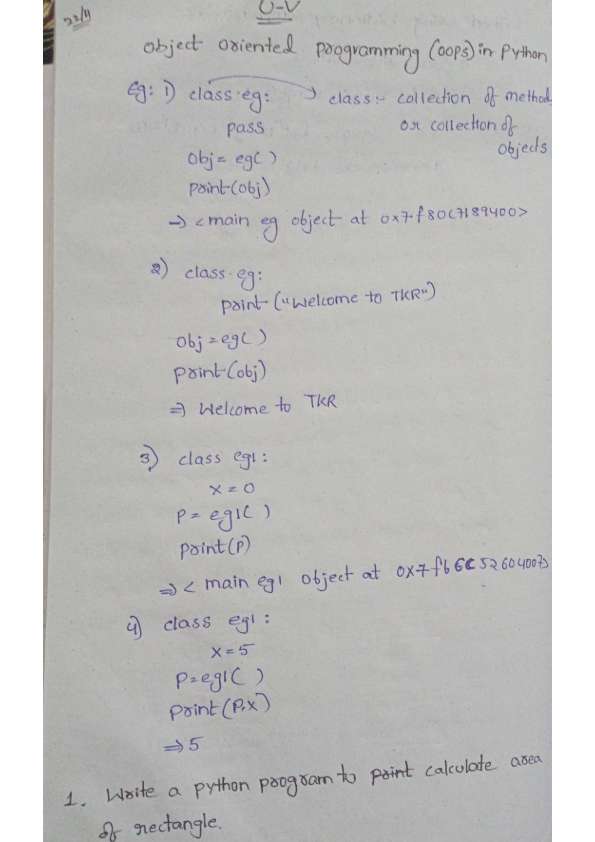 22/11
U-V
Object Oriented programming (oops) in Python
Eg: 1) class eg: → class:- collection of method
pass or collection of
objects
Obj = eg( )
print(obj)
→ <main eg object at 0x7f80C7189400>
2) class eg:
print ("Welcome to TKR")
Obj = eg( )
print(obj)
⇒ Welcome to TKR
3) class eg1:
x = 0
P = eg1( )
print(P)
⇒ < main eg1 object at 0x7fb6C52604007>
4) class eg1:
x = 5
P = eg1( )
print(P.x)
⇒ 5
1. Write a python program to print calculate area
of rectangle.